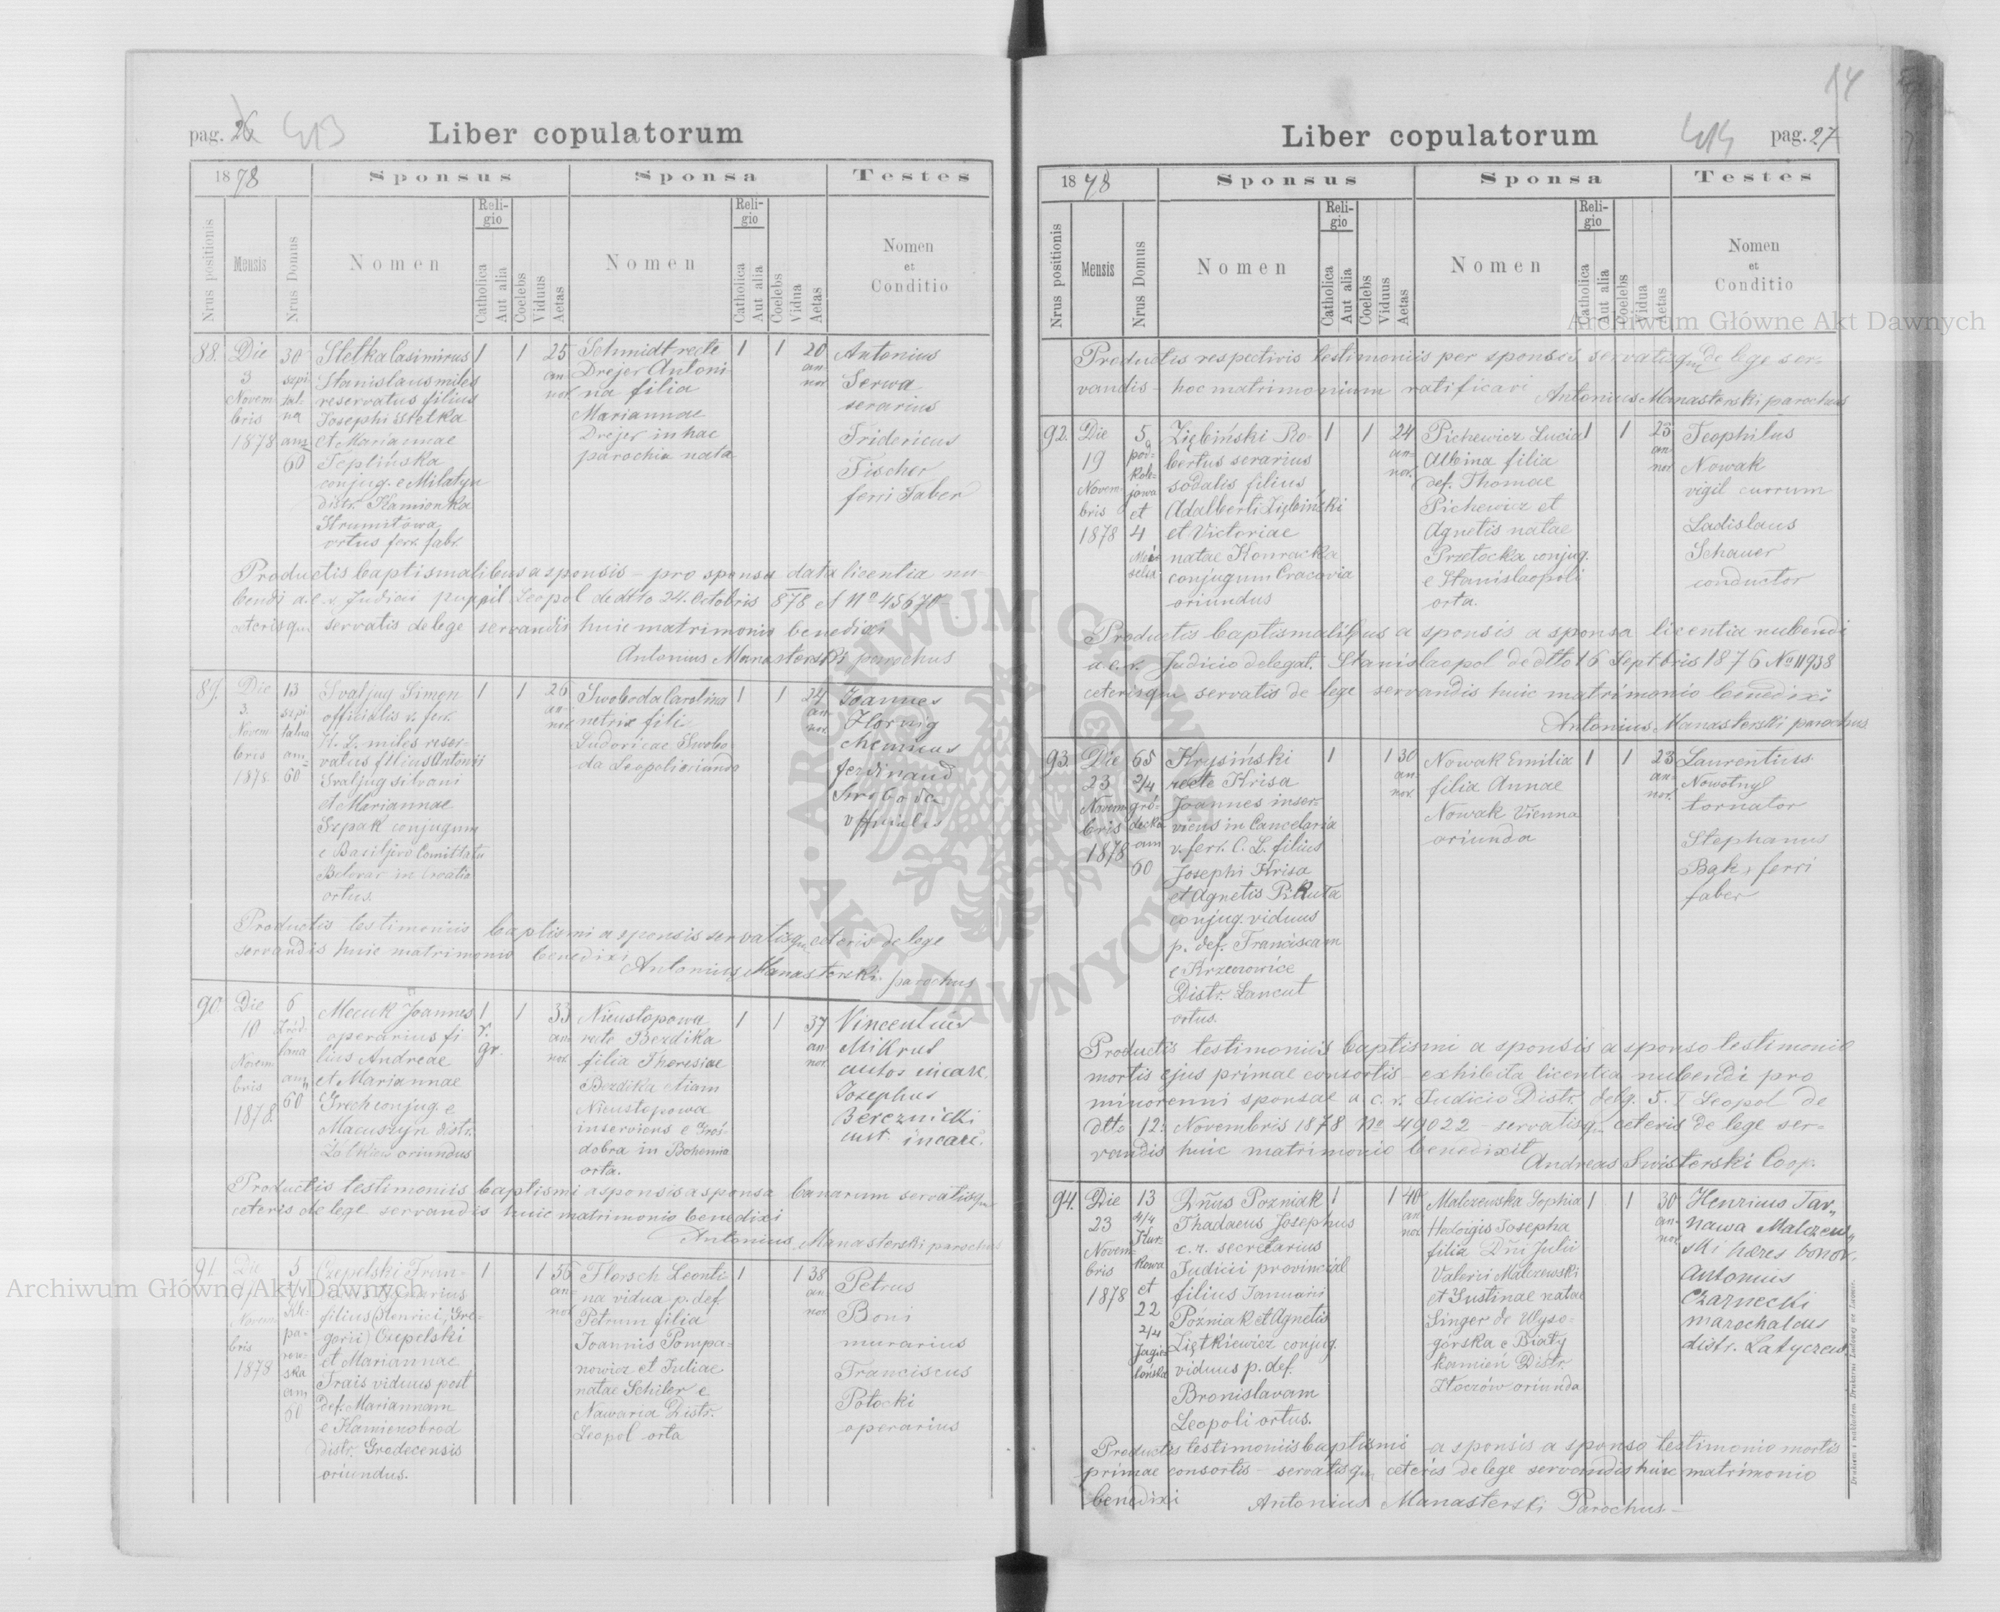 pag. 26 413
Liber copulatorum
1878
Sponsus
Sponsa
Testes
Nrus positionis
Mensis
Nrus Domus
Nomen
Religio
Catholica
Aut alia
Coelebs
Viduus
Aetas
Nomen
Religio
Catholica
Aut alia
Coelebs
Vidua
Aetas
Nomen
et
Conditio
88. Die 3 Novembris 1878
30 szpitalna am 60
Stetka Casimirus
Stanislaus miles
reservatus filius
Josephi Stetka
et Mariannae
Teplińska
conjug. e Milatyn
distr. Kamionka
Strumiłowa
ortus ferr. fabr.
1 1 25 annor.
Schmidt recte
Drejer Antoni
na filia
Mariannae
Drejer in hac
parochia nata
1 1 20 annor.
Antonius
Serwa
serarius
Fridericus
Fischer
ferri faber
Productis baptismalibus a sponsis - pro sponsa data licentia nu-
bendi a c. r. Judicii puppil Leopol de dtto 24. Octobris 878 et No 45670
ceterisque servatis de lege servandis huic matrimonio benedixi
Antonius Manasterski parochus
89. Die 3 Novembris 1878
13 szpitalna am 60
Svaljug Simon
officialis v. ferr.
K. L. miles reser-
vatus filius Antonii
Svaljug silvani
et Mariannae
Szpak conjugum
e Basiljevo Comittatu
Belovar in Croatia
ortus.
1 1 26 annor
Swoboda Carolina
netrix filia
Ludovicae Swobo-
da Leopoli oriunda
1 1 24 annor
Joannes
Hornig
chemicus
Ferdinand
Swoboda
officialis
Productis testimoniis baptismi a sponsis servatisque ceteris de lege
servandis huic matrimonio benedixi
Antonius Manasterski parochus
90. Die 10 Novembris 1878
6 am 60
Mecuk Joannes
operarius fi-
lius Andreae
et Mariannae
Grech conjug. e
Macuszyn distr.
Żółkiew oriundus
1 r. gr. 1 33 annor
Nieustopowa
recte Bezdika
filia Theresiae
Bezdika etiam
Nieustopowa
inserviens e Groß-
dobra in Bohemia
orta.
1 1 37 annor.
Vincentius
Mikrut
custos incarc.
Josephus
Bereznicki
cust. incarc.
Productis testimoniis baptismi a sponsis a sponsa banarum servatisque
ceteris de lege servandis huic matrimonio benedixi
Antonius Manasterski parochus
91. Die Novembris 1878
5 Kleparowska am 60
Czepelski Fran-
filius (Henrici, Gre-
gorii) Czepelski
et Mariannae
Trais viduus post
def. Mariannam
e Kamienobrod
Distr. Grodecensis
oriundus.
1 1 56 annor
Florsch Leonti-
na vidua p. def.
Petrum filia
Joannis Pompa-
nowicz et Juliae
natae Schiler e
Nawaria Distr.
Leopol orta
1 1 38 annor
Petrus
Boni
murarius
Franciscus
Potocki
operarius
14
Liber copulatorum
414 pag. 27
1878
Sponsus
Sponsa
Testes
Nrus positionis
Mensis
Nrus Domus
Nomen
Religio
Catholica
Aut alia
Coelebs
Viduus
Aetas
Nomen
Religio
Catholica
Aut alia
Coelebs
Vidua
Aetas
Nomen
et
Conditio
Productis respectivis testimoniis per sponsos, servatisque de lege ser-
vandis - hoc matrimonium ratificari Antonius Manasterski parochus
92. Die 19 Novembris 1878
5 podkolejowa et 4
Ziębiński Ro-
bertus serarius
sodalis filius
Adalberti Ziębiński
et Victoriae
natae Konracka
conjugum Cracovia
oriundus
1 1 24 annor.
Pichewicz Lucia
Albina filia
def. Thomae
Pichewicz et
Agnetis natae
Przetocka conjug.
e Stanislaopoli
orta.
1 1 25 annor
Teophilus
Nowak
vigil currum
Ladislaus
Schauer
conductor
Productis baptismalibus a sponsis a sponsa licentia nubendi
a c. r. Judicio delegat. Stanislaopol de dtto 16 Septbris 1876 No 11938
ceterisque servatis de lege servandis huic matrimonio benedixi
Antonius Manasterski parochus
93. Die 23 Novembris 1878
65 2/4 gródecka am 60
Krysiński
recte Krisa
Joannes inser-
viens in Cancelaria
v. ferr. C. L. filius
Josephi Krisa
et Agnetis Pikuta
conjug. viduus
p. def. Franciscam
e Krzemowice
Distr. Łancut
ortus.
1 1 30 annor.
Nowak Emilia
filia Annae
Nowak Vienna
oriunda
1 1 23 annor.
Laurentius
Nowotny
tornator
Stephanus
Bąk, ferri
faber
Productis testimoniis baptismi a sponsis a sponso testimonio
mortis ejus primae consortis - exhibita licentia nubendi pro
minorenni sponsae a c. r. Judicio Distr. delg. S. I Leopol de
dtto 12. Novembris 1878 No 49022 - servatisque ceteris de lege ser-
vandis huic matrimonio benedixit
Andreas Swisterski Coop.
94. Die 23 Novembris 1878
13 4/4 Kurkowa et 22 2/4 Jagiellońska
Dnus Pozniak
Thadaeus Josephus
c. r. secretarius
Judicii provincial
filius Januarii
Póżniak et Agnetis
Ziętkiewicz conjug.
viduus p. def.
Bronislavam
Leopoli ortus.
1 1 40 annor
Malczewska Sophia
Hedvigis Josepha
filia Dni Julii
Valerii Malczewski
et Justinae natae
Singer de Wyso-
gorska e Biały
kamień Distr.
Złoczów oriunda
1 1 30 annor
Henrius Tar-
nawa Malczew-
ski haeres bonor.
Antonius
Czarnecki
marechalcus
distr. Latyczew.
Productis testimoniis baptismi a sponsis a sponso testimonio mortis
primae consortis - servatisque ceteris de lege servandis huic matrimonio
benedixi Antonius Manasterski Parochus -
Archiwum Główne Akt Dawnych
Archiwum Główne Akt Dawnych
ARCHIWUM GŁÓWNE AKT DAWNYCH